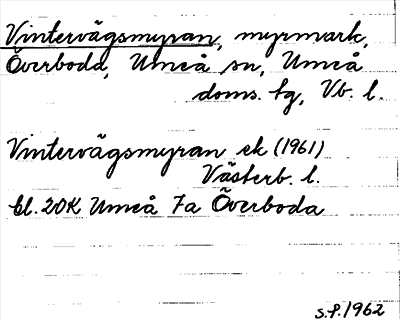 Vintervägsmyran, myrmark,
Överboda, Umeå sn, Umeå
doms. tg, Vb. l.
Vintervägsmyran ek (1961)
Västerb. l.
bl. 20K Umeå 7a Överboda
S.P. 1962